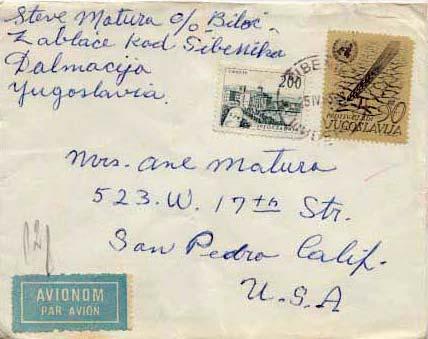 Steve Matura c/o Biloć
Zablaće kod Šibenika
Dalmacija
Yugoslavia
200
JUGOSLAVIJA
50
JUGOSLAVIJA
Mrs. Ane Matura
523. W. 17th Str.
San Pedro Calif.
U.S.A
AVIONOM
PAR AVION